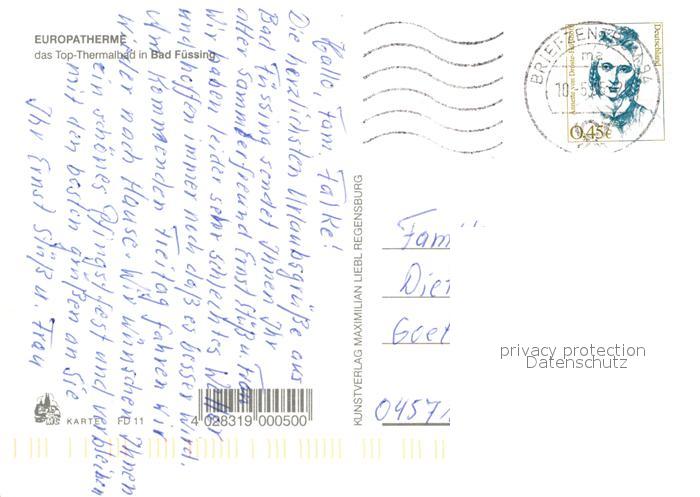 EUROPATHERME
das Top-Thermalbad in Bad Füssing
Hallo, Fam. Falke!
Die herzlichsten Urlaubsgrüße aus
Bad Füssing sendet Ihnen Ihr
alter Sammlerfreund Ernst Süß u. Frau
Wir haben leider sehr schlechtes Wetter
und hoffen immer noch daß es besser wird.
Am kommenden Freitag fahren wir
wieder nach Hause. Wir wünschen Ihnen
ein schönes Pfingstfest und verbleiben
mit den besten Grüßen an Sie
Ihr Ernst Süß u. Frau
KARTE FD 11
4 028319 000500
KUNSTVERLAG MAXIMILIAN LIEBL REGENSBURG
BRIEFZENTRUM 94
ma
Deutschland
0,45€
Fam
Diet
Goet
04571
privacy protection
Datenschutz